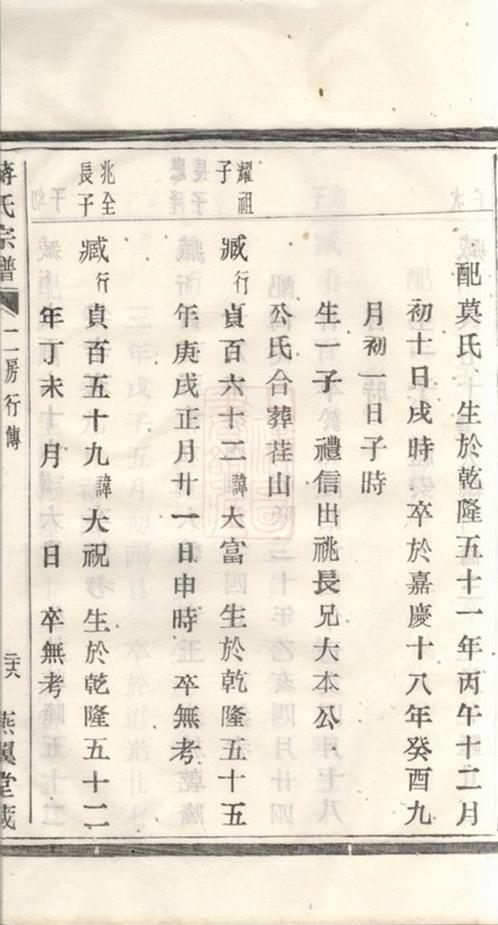 配莫氏 生於乾隆五十一年丙午十二月
初十日戌時 卒於嘉慶十八年癸酉九
月初一日子時
生一子 禮信出祧長兄大本公
公氏合葬茬山
耀祖
子
臧行貞百六十二諱大富 生於乾隆五十五
年庚戌正月廿一日申時 卒無考
兆全
長子
臧行貞百五十九諱大祝 生於乾隆五十二
年丁未 月 日 卒無考
蔣氏宗譜 二房行傳 燕翼堂藏